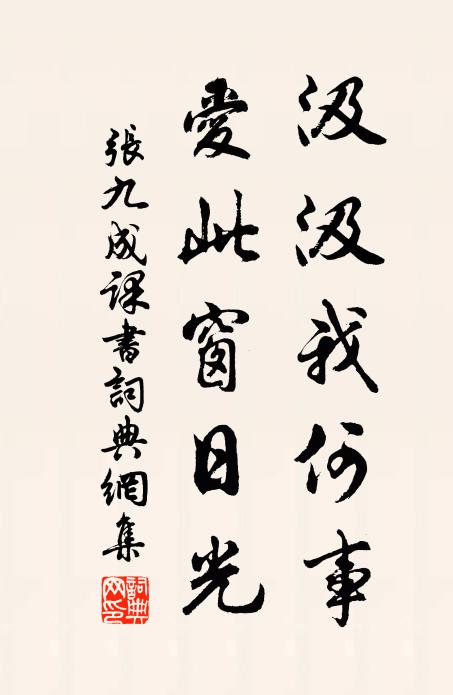 汲汲我何事
愛此窗日光
張九成課書詞典網集
詞典网印